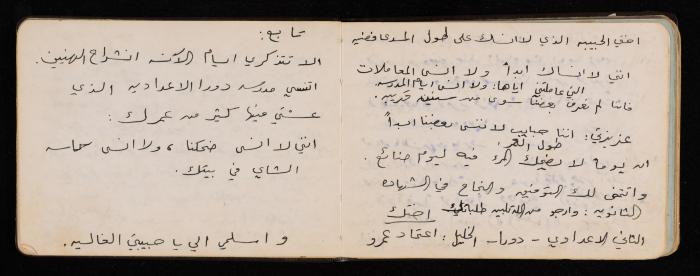 اختي الحبيبه الذي لا انساك على طول المدى عافضيه
انني لا انساك ابداً ولا انسى المعاملات
التي عاملتني اياها: ولا انسى ايام المدرسه
فاننا لم نعرف بعضنا سوى من سنتين قريبه.
عزيزتي: اننا حبايب لا ننسى بعضنا ابداً
طول العمر:
ان يوماً لا يضحك المرء فيه ليوم ضائع.
واتمنى لك التوفيق والنجاح في الشهاده
الثانويه: وارجو من الله تلبيه طلباتك اختك
الثاني الاعدادي - دورا - الخليل: اعتماد عمرو
تابع:
الا تتذكري ايام الآنسه انشراح الهنيني.
اتنسي مدرسه دورا الاعداديه الذي
عشتي فيها كثير من عمرك:
انني لا انسى ضحكنا، ولا انسى كاسه
الشاي في بيتك.
واسلمي الي يا حبيبتي الغاليه.